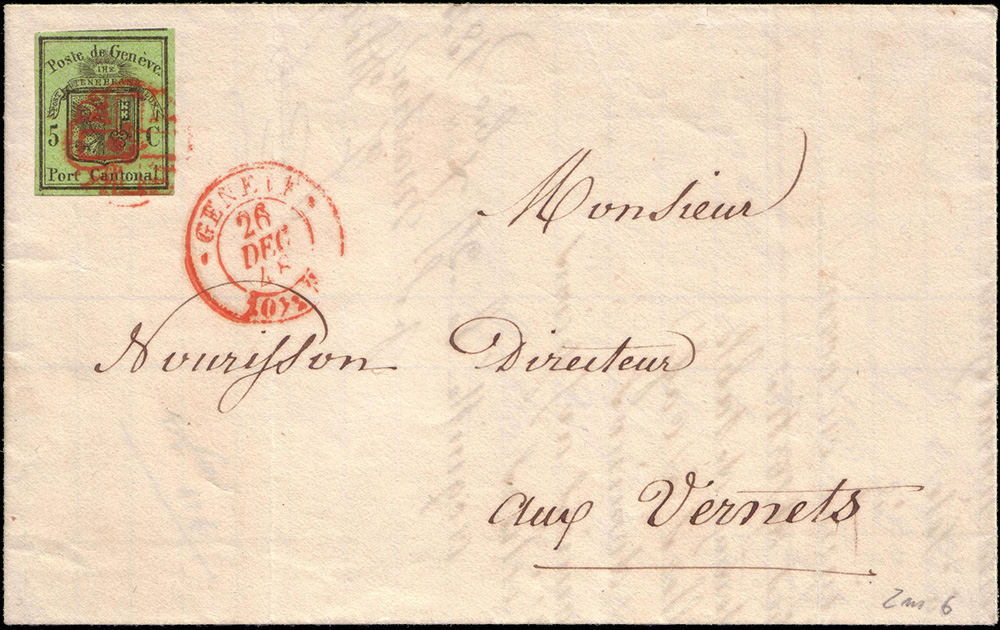 Poste de Genève.
IHS
POST TENEBRAS LUX
5 C
Port Cantonal
GENEVE
26
DEC
48
Monsieur
Nourisson Directeur
aux Vernets